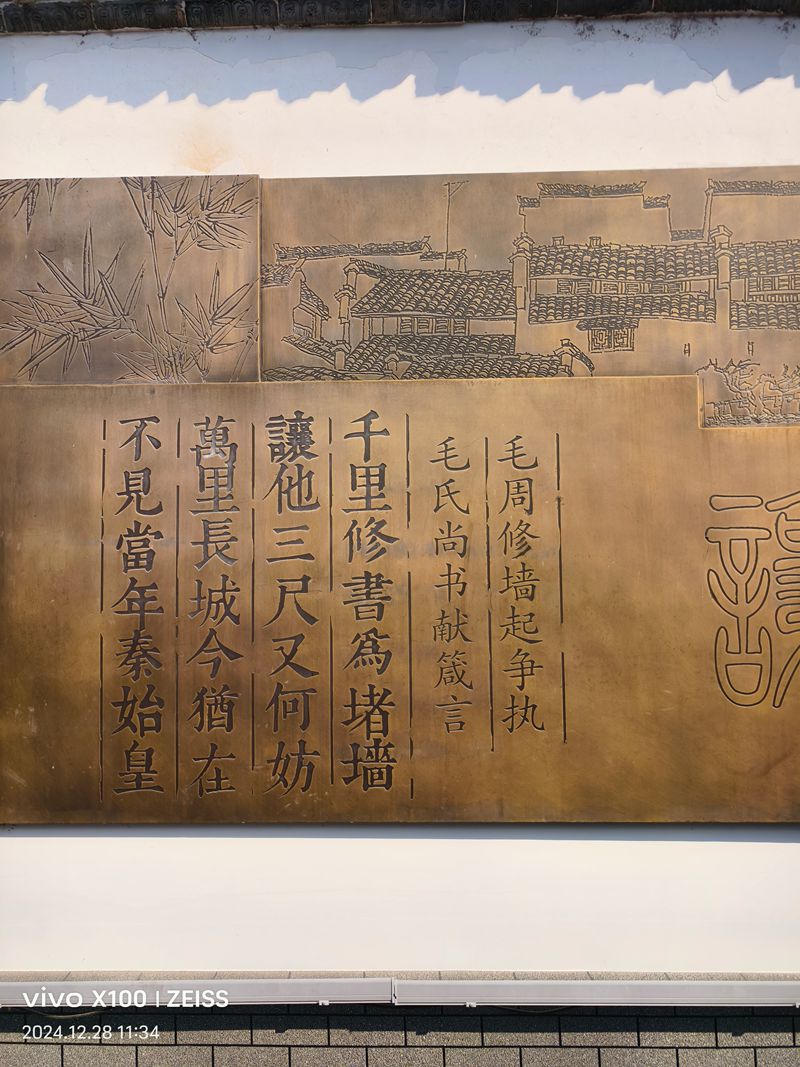 毛周修墙起争执
毛氏尚书献箴言
千里修書爲堵墻
讓他三尺又何妨
萬里長城今猶在
不見當年秦始皇
vivo X100 | ZEISS
2024.12.28 11:34